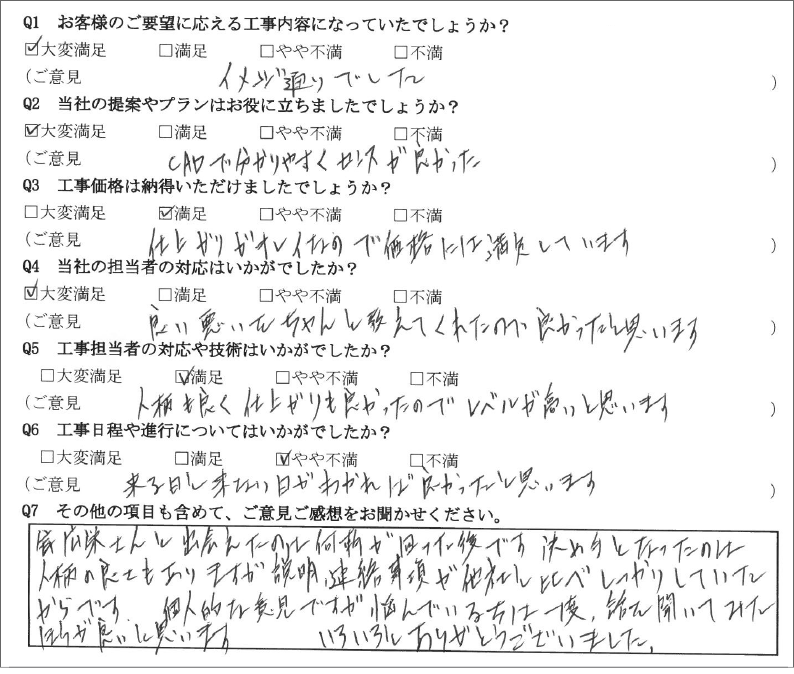 Q1 お客様のご要望に応える工事内容になっていたでしょうか？
☑大変満足 □満足 □やや不満 □不満
(ご意見 イメージ通りでした )
Q2 当社の提案やプランはお役に立ちましたでしょうか？
☑大変満足 □満足 □やや不満 □不満
(ご意見 CADで分かりやすくセンスが良かった )
Q3 工事価格は納得いただけましたでしょうか？
□大変満足 ☑満足 □やや不満 □不満
(ご意見 仕上がりがキレイなので価格には満足しています )
Q4 当社の担当者の対応はいかがでしたか？
☑大変満足 □満足 □やや不満 □不満
(ご意見 良い悪いをちゃんと教えてくれたので良かったと思います )
Q5 工事担当者の対応や技術はいかがでしたか？
□大変満足 ☑満足 □やや不満 □不満
(ご意見 人柄も良く仕上がりも良かったのでレベルが高いと思います )
Q6 工事日程や進行についてはいかがでしたか？
□大変満足 □満足 ☑やや不満 □不満
(ご意見 来る日と来ない日がわかれば良かったと思います )
Q7 その他の項目も含めて、ご意見ご感想をお聞かせください。
さんと出会えたのは何社か回った後です 決め手となったのは
人柄の良さもありますが説明、連絡事項が他社と比べしっかりしていた
からです 個人的な意見ですが悩んでいる方は一度、話を聞いてみた
ほうが良いと思います いろいろとありがとうございました。